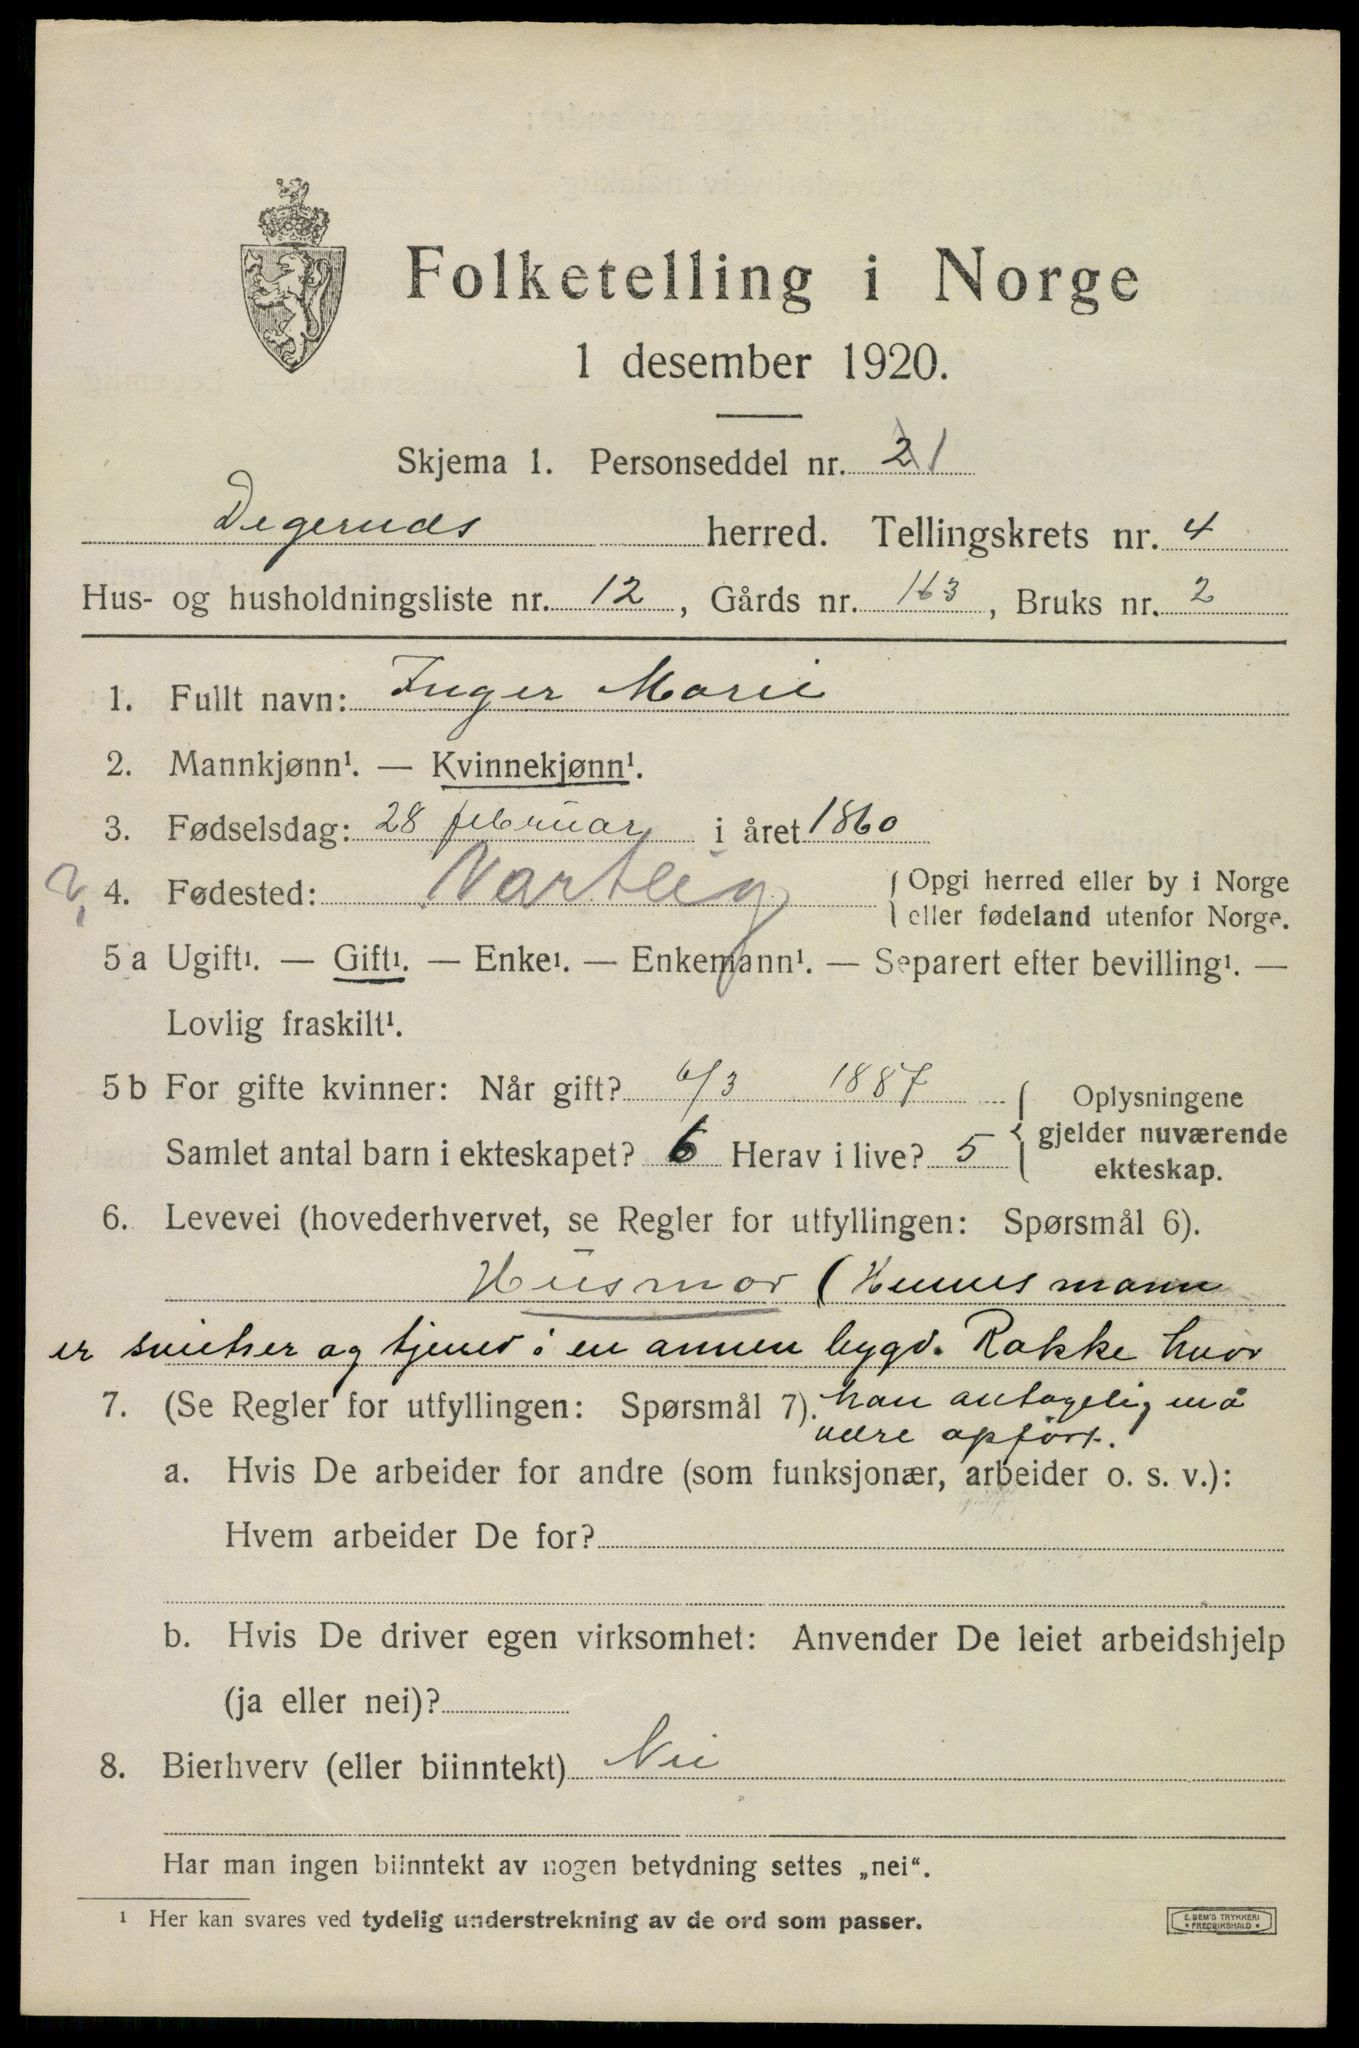 Folketelling i Norge
1 desember 1920.
Skjema 1. Personseddel nr. 1
Degernes herred. Tellingskrets nr. 4
Hus- og husholdningsliste nr. 12, Gårds nr. 163, Bruks nr. 2
1. Fullt navn: Inger Marie
2. Mannkjønn¹. — Kvinnekjønn¹.
3. Fødselsdag: 28 februar i året 1860
4. Fødested: Varteig { Opgi herred eller by i Norge
eller fødeland utenfor Norge.
5 a Ugift¹. — Gift¹. — Enke¹. — Enkemann¹. — Separert efter bevilling¹. —
Lovlig fraskilt¹.
5 b For gifte kvinner: Når gift? 6/3 1887 { Oplysningene
gjelder nuværende
ekteskap.
Samlet antal barn i ekteskapet? 6 Herav i live? 5
6. Levevei (hovederhvervet, se Regler for utfyllingen: Spørsmål 6).
Husmor (Hennes mann
er sveitser og tjener i en annen bygd. Rakke hvor
han antagelig må
være opført.
7. (Se Regler for utfyllingen: Spørsmål 7).
a. Hvis De arbeider for andre (som funksjonær, arbeider o. s. v.):
Hvem arbeider De for?
b. Hvis De driver egen virksomhet: Anvender De leiet arbeidshjelp
(ja eller nei)?
8. Bierhverv (eller biinntekt) Nei
Har man ingen biinntekt av nogen betydning settes „nei“.
¹ Her kan svares ved tydelig understrekning av de ord som passer.
E. SEM'S TRYKKERI
FREDRIKSHALD